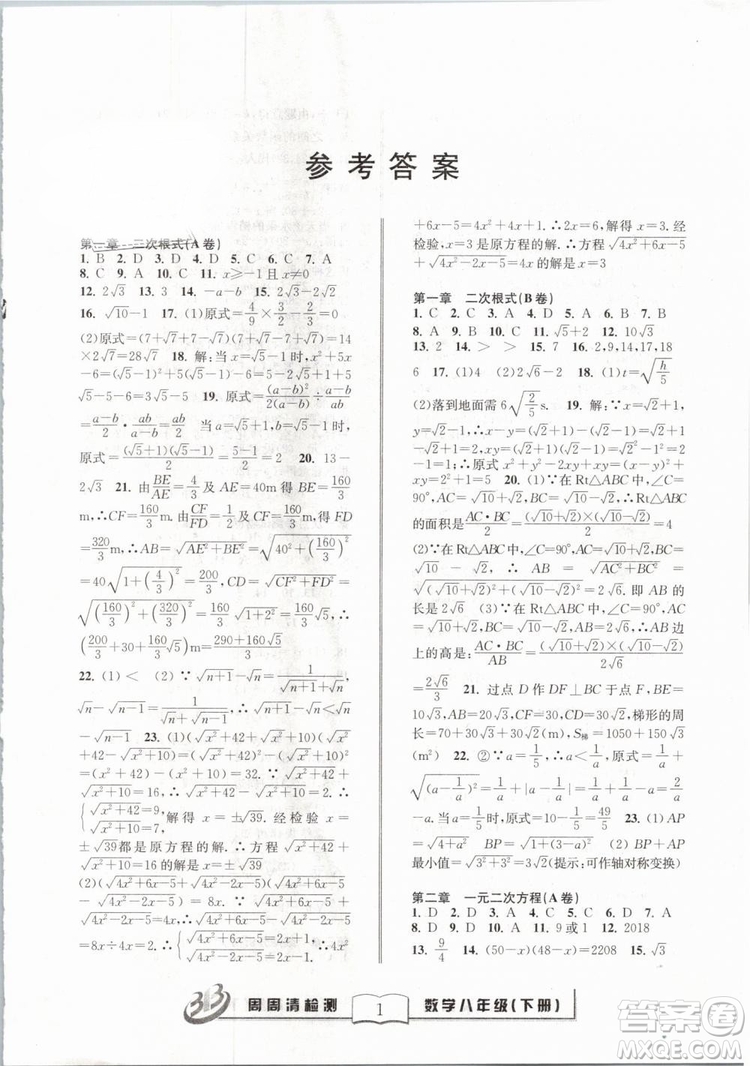 参考答案
第一章 二次根式(A卷)
1. B 2. D 3. D 4. D 5. C 6. C 7. A
8. C 9. A 10. C 11. x≥-1且x≠0
12. 2√3 13. 4 14. -a-b 15. √3-2√2
16. 10√3 17. (1)原式=√(4/9×3/2-2/3)=0
(2)原式=(7+√7+7-√7)(7+√7-7+√7)=14
×2√7=28√7 18. 解:当x=√5-1时,x²+
5x-6=(√5-1)²+5(√5-1)-6=5-2√5+1+
5√5-5-6=3√5-5 19. 原式=(a-b)²/2(a-b)÷(a-b)/ab
=(a-b)/2·ab/(a-b)=ab/2 当a=√5+1,b=√5-1时,
原式=(√5+1)(√5-1)/2=(5-1)/2=2 20. 13-
2√3 21. 由BE/AE=4/3及AE=40m得BE=
160/3m;由CF=160/3m,CF/FD=1/2得FD=
320/3m.∴AB=√(AE²+BE²)=√(40²+(160/3)²)
=40√(1+(4/3)²)=200/3,CD=√(CF²+FD²)=
√((160/3)²+(320/3)²)=160/3√(1+2²)=160/3√5,∴
(200/3+30+160/3√5)m=(290+160√5)/3m
22. (1)< (2)∵√(n+1)-√n=1/(√(n+1)+√n),
√n-√(n-1)=1/(√n+√(n-1)),∴√(n+1)-√n<√n
-√(n-1) 23. (1)(√(x²+42)+√(x²+10))
(√(x²+42)-√(x²+10))=(√(x²+42))²-
(√(x²+10))²=(x²+42)-(x²+10)=32,
∵√(x²+42)+√(x²+10)=16,∴√(x²+42)-
√(x²+10)=32÷16=2,
∴{√(x²+42)=9, √(x²+10)=7, 解得x=±√39.经检验x=
±√39都是原方程的解,∴方程√(x²+42)+
√(x²+10)=16的解是x=±√39
(2)(√(4x²+6x-5)+√(4x²-2x-5))
(√(4x²+6x-5)-√(4x²-2x-5))=
(√(4x²+6x-5))²-(√(4x²-2x-5))²=
(4x²+6x-5)-(4x²-2x-5)=8x.∵
√(4x²+6x-5)+√(4x²-2x-5)=4x,
∴√(4x²+6x-5)-√(4x²-2x-5)
=8x÷4x=2.∴{√(4x²+6x-5)=2x+1, √(4x²-2x-5)=2x-1, ∵4x²
+6x-5=4x²+4x+1.∴2x=6,解得x=3.经
检验,x=3是原方程的解.∴方程√(4x²+6x-5)
+√(4x²-2x-5)=4x的解是x=3
第一章 二次根式(B卷)
1. C 2. C 3. A 4. D 5. A 6. B 7. B
8. A 9. D 10. C 11. √5+√2 12. 10√3
13. 2 14. > > 15. 7 16. 2,9,14,17,18
6 17. (1)4 (2)-2√2 18. (1)t=√(h/5)
(2)落到地面需6√(2/5)s. 19. 解:∵x=√2+1,
y=√2-1,∴x-y=√2+1-√2+1=2,xy=(√2
-1)=1;∴原式=x²+y²-2xy+xy=(x-y)²+
xy=2²+1=5 20. (1)∵在Rt△ABC中,∠C=
90°,AC=√10+√2,BC=√10-√2,∴Rt△ABC
的面积是AC·BC/2=(√10+√2)(√10-√2)/2=4
(2)∵在Rt△ABC中,∠C=90°,AC=
√10+√2,BC=√10-√2,∴AB=√(AC²+BC²)=
√((√10+√2)²+(√10-√2)²)=2√6.即AB的
长是2√6 (3)∵在Rt△ABC中,∠C=90°,AC
=√10+√2,BC=√10-√2,AB=2√6,∴AB
边上的高是:AC·BC/AB=(√10+√2)(√10-√2)/2√6
=2√6/3 21. 过点D作DF⊥BC于点F,BE=
10√3,AB=30√2,CD=30.∴梯形的周
长=70+10√3+30√2(m),S梯=1050+150√3
(m²) 22. ②∵a=1/5,∴a<1/a,∴原式=1/a+
√((a-1/a)²)=1/a+|a-1/a|=1/a+1/a-a=2/a
-a.当a=1/5时,原式=10-1/5=49/5 23. (1)AP
=√(4+a²),BP=√(1+(3-a)²) (2)BP+AP
最小值=√(3²+3²)=3√2(提示:可作轴对称变换)
第二章 一元二次方程(A卷)
1. D 2. D 3. A 4. C 5. C 6. C 7. A
8. D 9. D 10. A 11. 9或1 12. 2018
13. 9/4 14. (50-x)(48-x)=2208 15. √3
周周清检测 1 数学八年级(下册)
答案圈
MXQE.COM